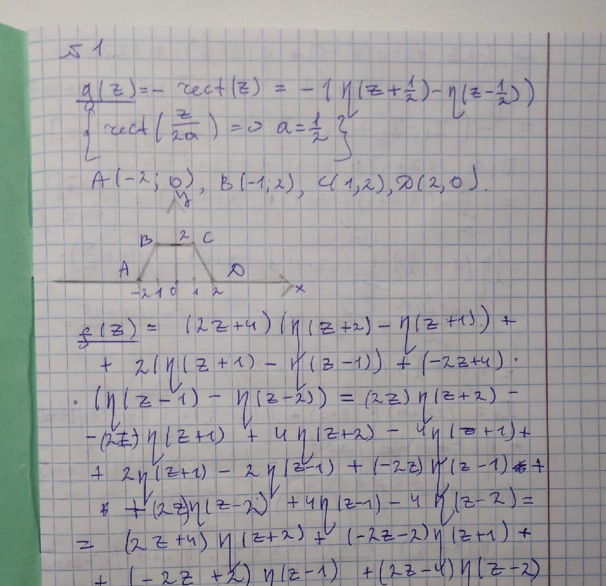 №1.
g(z) = - rect(z) = -(η(z+1/2) - η(z-1/2))
{rect(z/2a) => a=1/2}
A(-2; 0), B(-1,2), C(1,2), D(2,0).
y
B 2 C
A D
-2 -1 0 1 2 x
f(z) = (2z+4)(η(z+2) - η(z+1)) +
+ 2(η(z+1) - η(z-1)) + (-2z+4) ·
· (η(z-1) - η(z-2)) = (2z) η(z+2) -
-(2z) η(z+1) + 4η(z+2) - 4η(z+1) +
+ 2η(z+1) - 2η(z-1) + (-2z) η(z-1) +
+ (2z)η(z-2) + 4η(z-1) - 4η(z-2) =
= (2z+4) η(z+2) + (-2z-2) η(z+1) +
+ (-2z+2) η(z-1) + (2z-4) η(z-2)